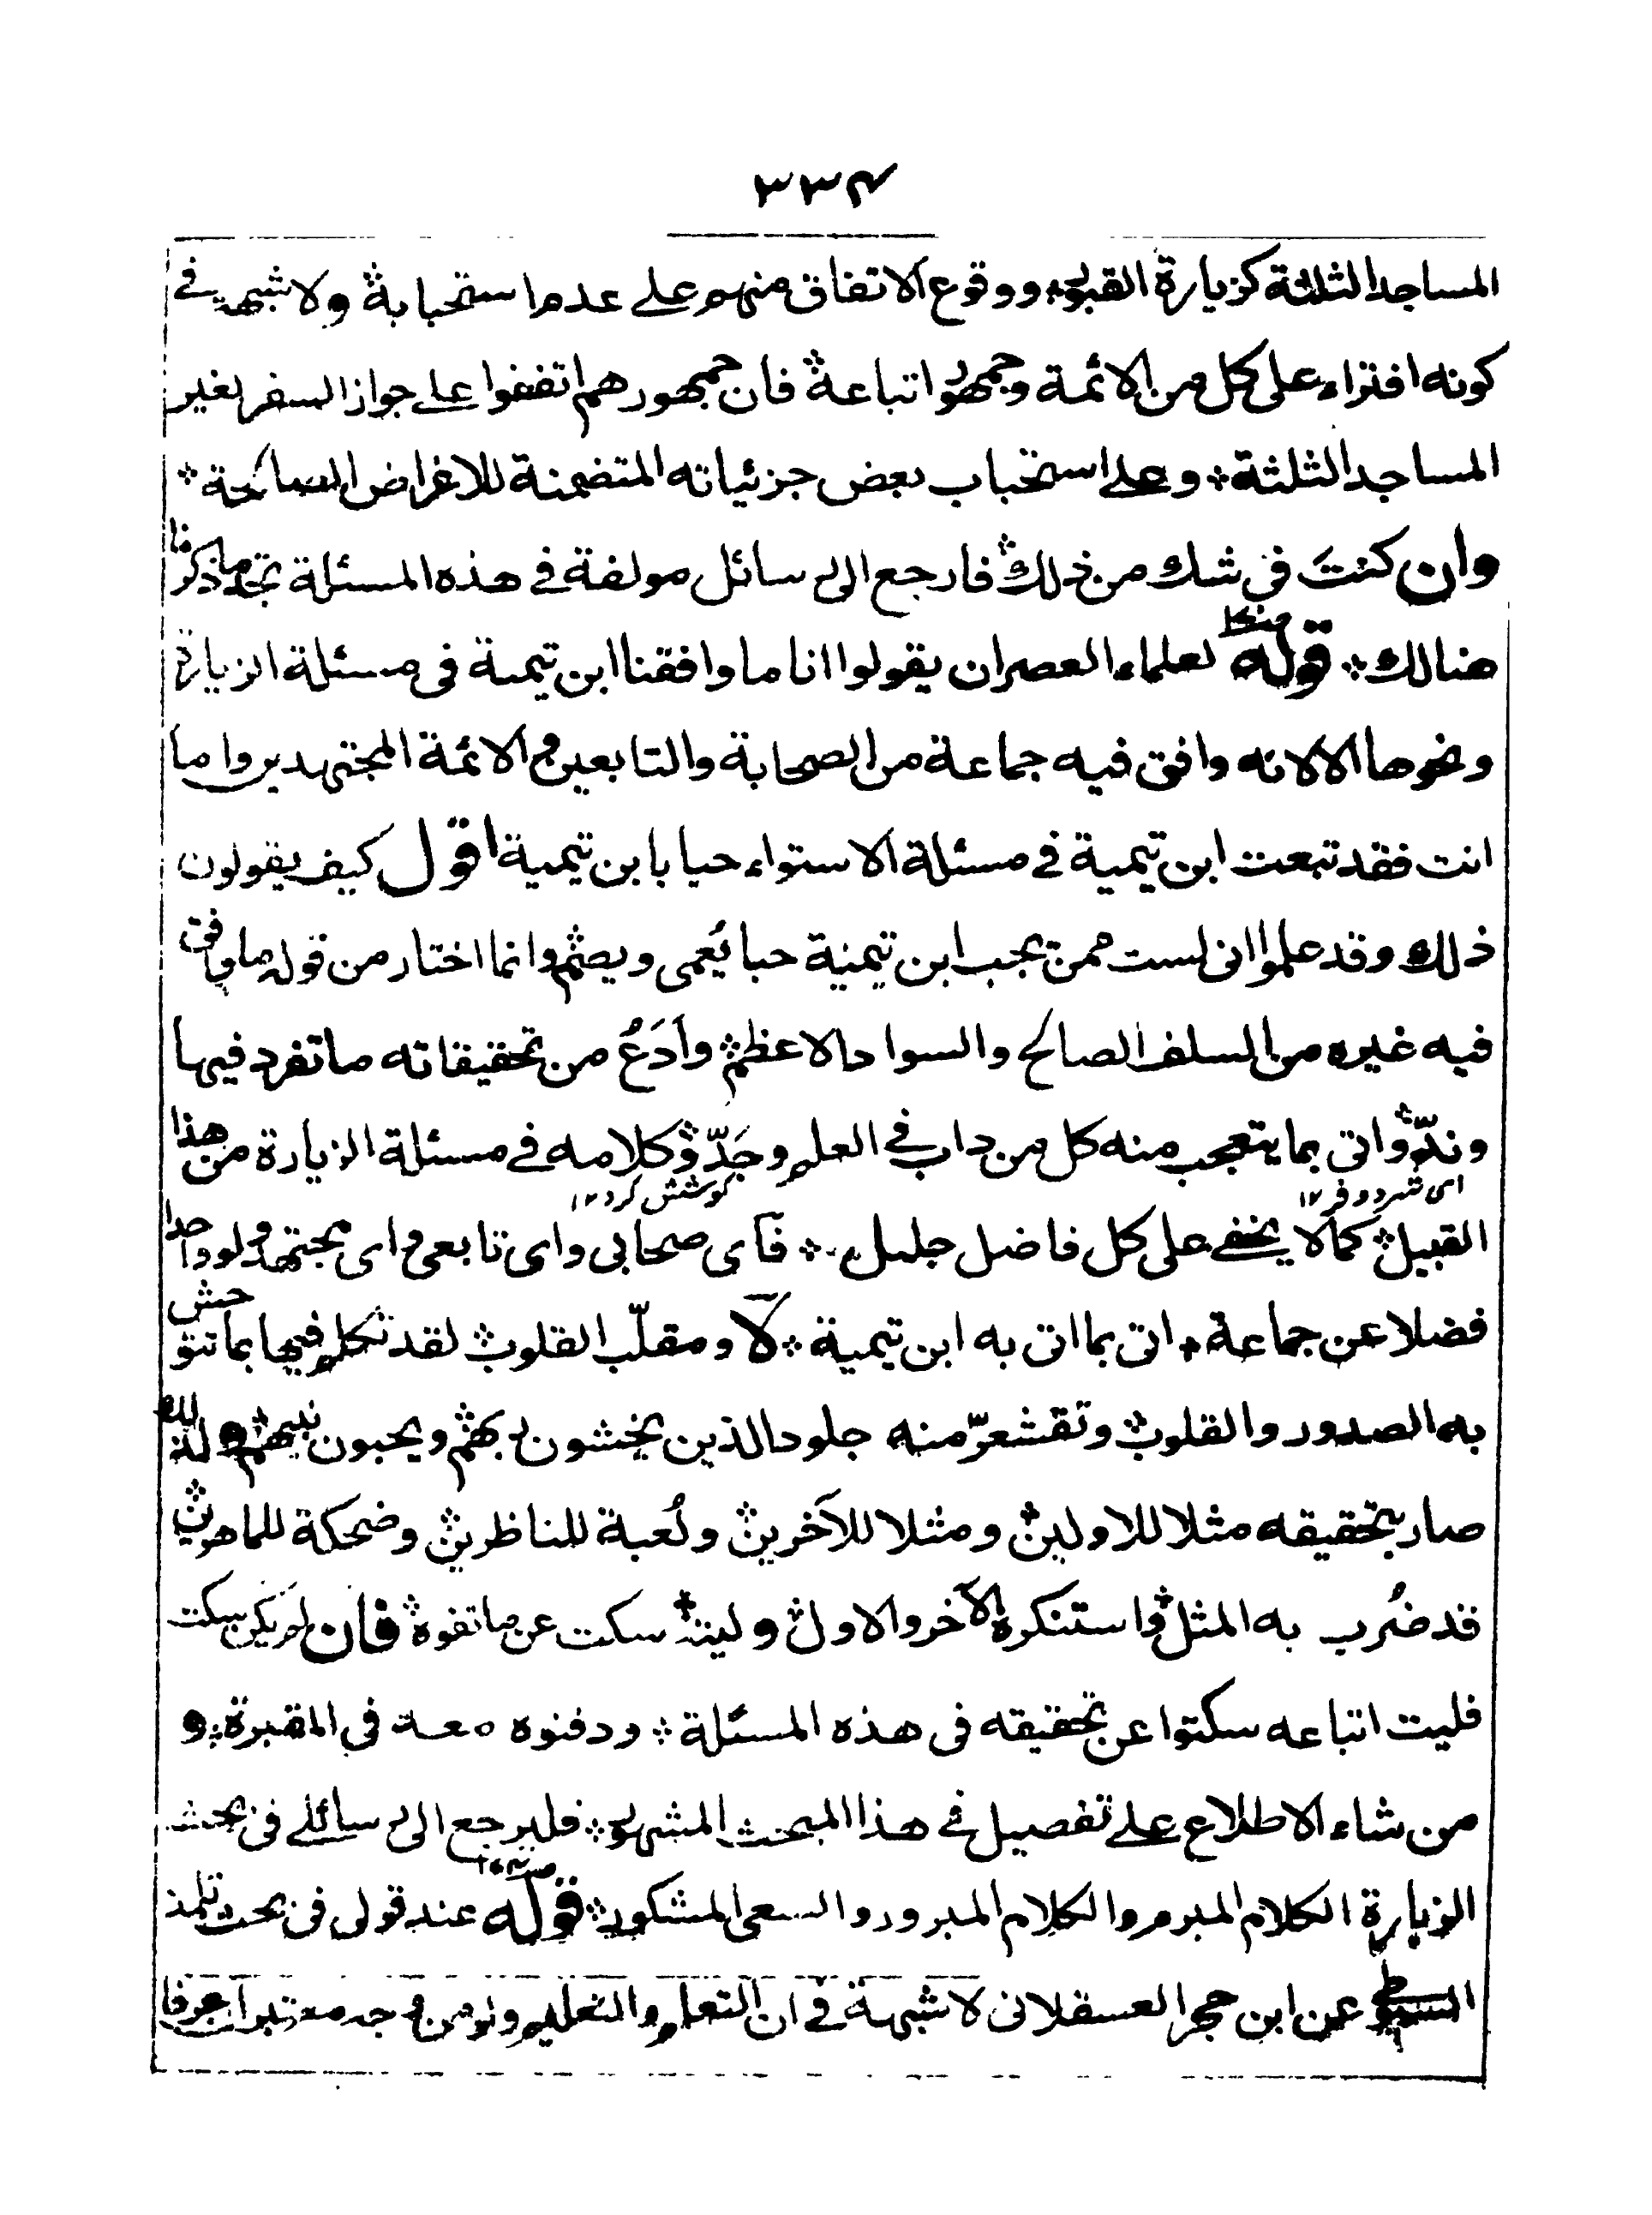 ٣٣٤
المساجد الثلثة كزيارة القبور ووقوع الاتفاق منهم على عدم استحبابه ولا شبهة في
كونه افتراء على كل من الائمة وجمهور اتباعه فان جمهورهم اتفقوا على جواز السفر لغير
المساجد الثلثة وعلى استحباب بعض جزئياته المتضمنة للاغراض الصالحة
وان كنت في شك من ذلك فارجع الى رسائل مولفة في هذه المسئلة تجد ما ذكرنا
هنالك قوله لعلماء العصر ان يقولوا انا ما وافقنا ابن تيمية في مسئلة الزيارة
ونحوها الا لانه وافق فيه جماعة من الصحابة والتابعين والائمة المجتهدين واما
انت فقد تبعت ابن تيمية في مسئلة الاستواء حبا بابن تيمية اقول كيف يقولون
ذلك وقد علموا اني لست ممن يحب ابن تيمية حبا يُعمى ويصم وانما اختار من قوله ما وافق
فيه غيره من السلف الصالح والسواد الاعظم وأدَعُ من تحقيقاته ما تفرد فيها
وندّ واتى بما يتعجب منه كل من داب في العلم وجَدّ وكلامه في مسئلة الزيارة من هذا
كوشش كرد ١٢
القبيل كما لا يخفى على كل فاضل جليل فأى صحابى واى تابعى واى مجتهد ولو واحدا
فضلا عن جماعة اتى بما اتى به ابن تيمية لا ومقلّب القلوب لقد تكلم فيها بما تتوحش
به الصدور والقلوب وتقشعرّ منه جلود الذين يخشون ربهم ويحبون نبيهم ولله
صار بتحقيقه مثلا للاولين ومثلا للآخرين ولُعبة للناظرين وضحكة للماهرين
قد ضُرب به المثل واستنكره الآخر والاول وليته سكت عن ما تفوه فان لم يكن سكت
فليت اتباعه سكتوا عن تحقيقه في هذه المسئلة ودفنوه معه في المقبرة و
من شاء الاطلاع على تفصيل في هذا المبحث المشهور فليرجع الى رسائلى في بحث
الزيارة الكلام المبرم والكلام المبرور والسعى المشكور قوله عند قولى في بحث تلمذ
السيوطى عن ابن حجر العسقلانى لا شبهة في ان التعلم والتعليم